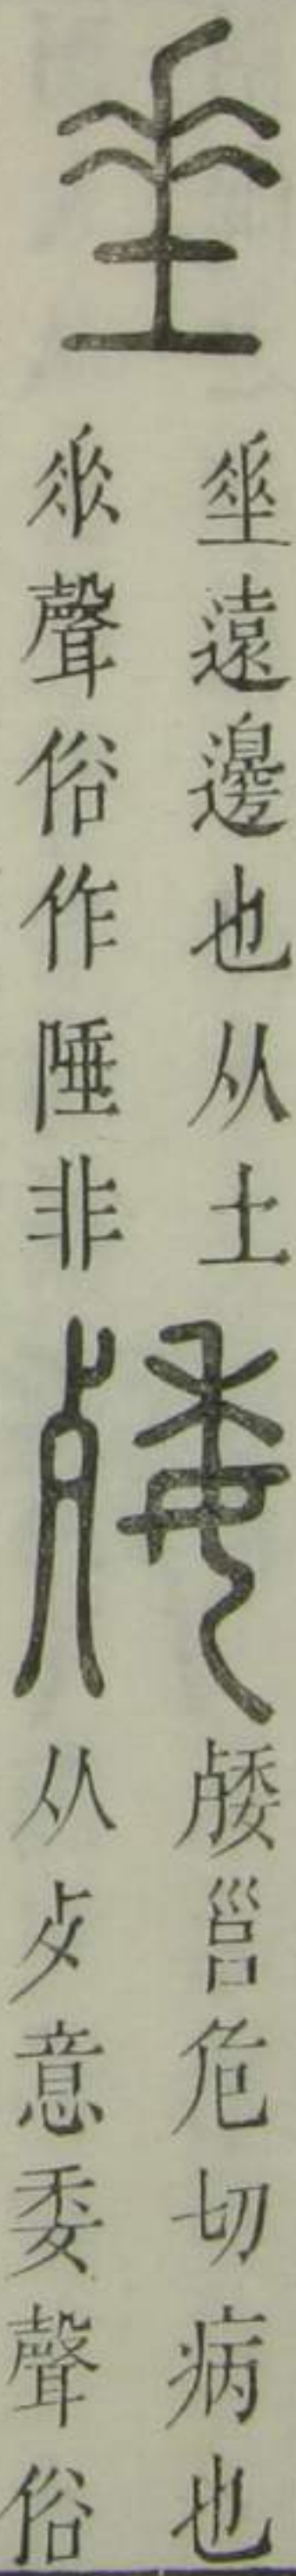 垂
垂遠邊也从土
𠂹聲俗作陲非
𣨙
𣨙邕危切病也
从歺意委聲俗